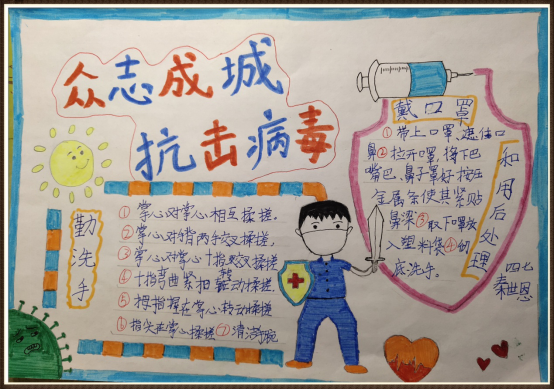 众志成城
抗击病毒
勤洗手
①掌心对掌心相互揉搓。
②掌心对指两手交叉揉搓,
③掌心对掌心十指交叉揉搓
④十指弯曲紧扣转动揉搓。
⑤拇指握在掌心转动揉搓
⑥指尖在掌心揉搓⑦清洁手腕
戴口罩
①带上口罩,遮住口
鼻②拉开口罩,将下巴
嘴巴、鼻子罩好按压
金属条使其紧贴
鼻梁③取下口罩放
入塑料袋④彻
底洗手。
和用后处理
四七
秦世恩